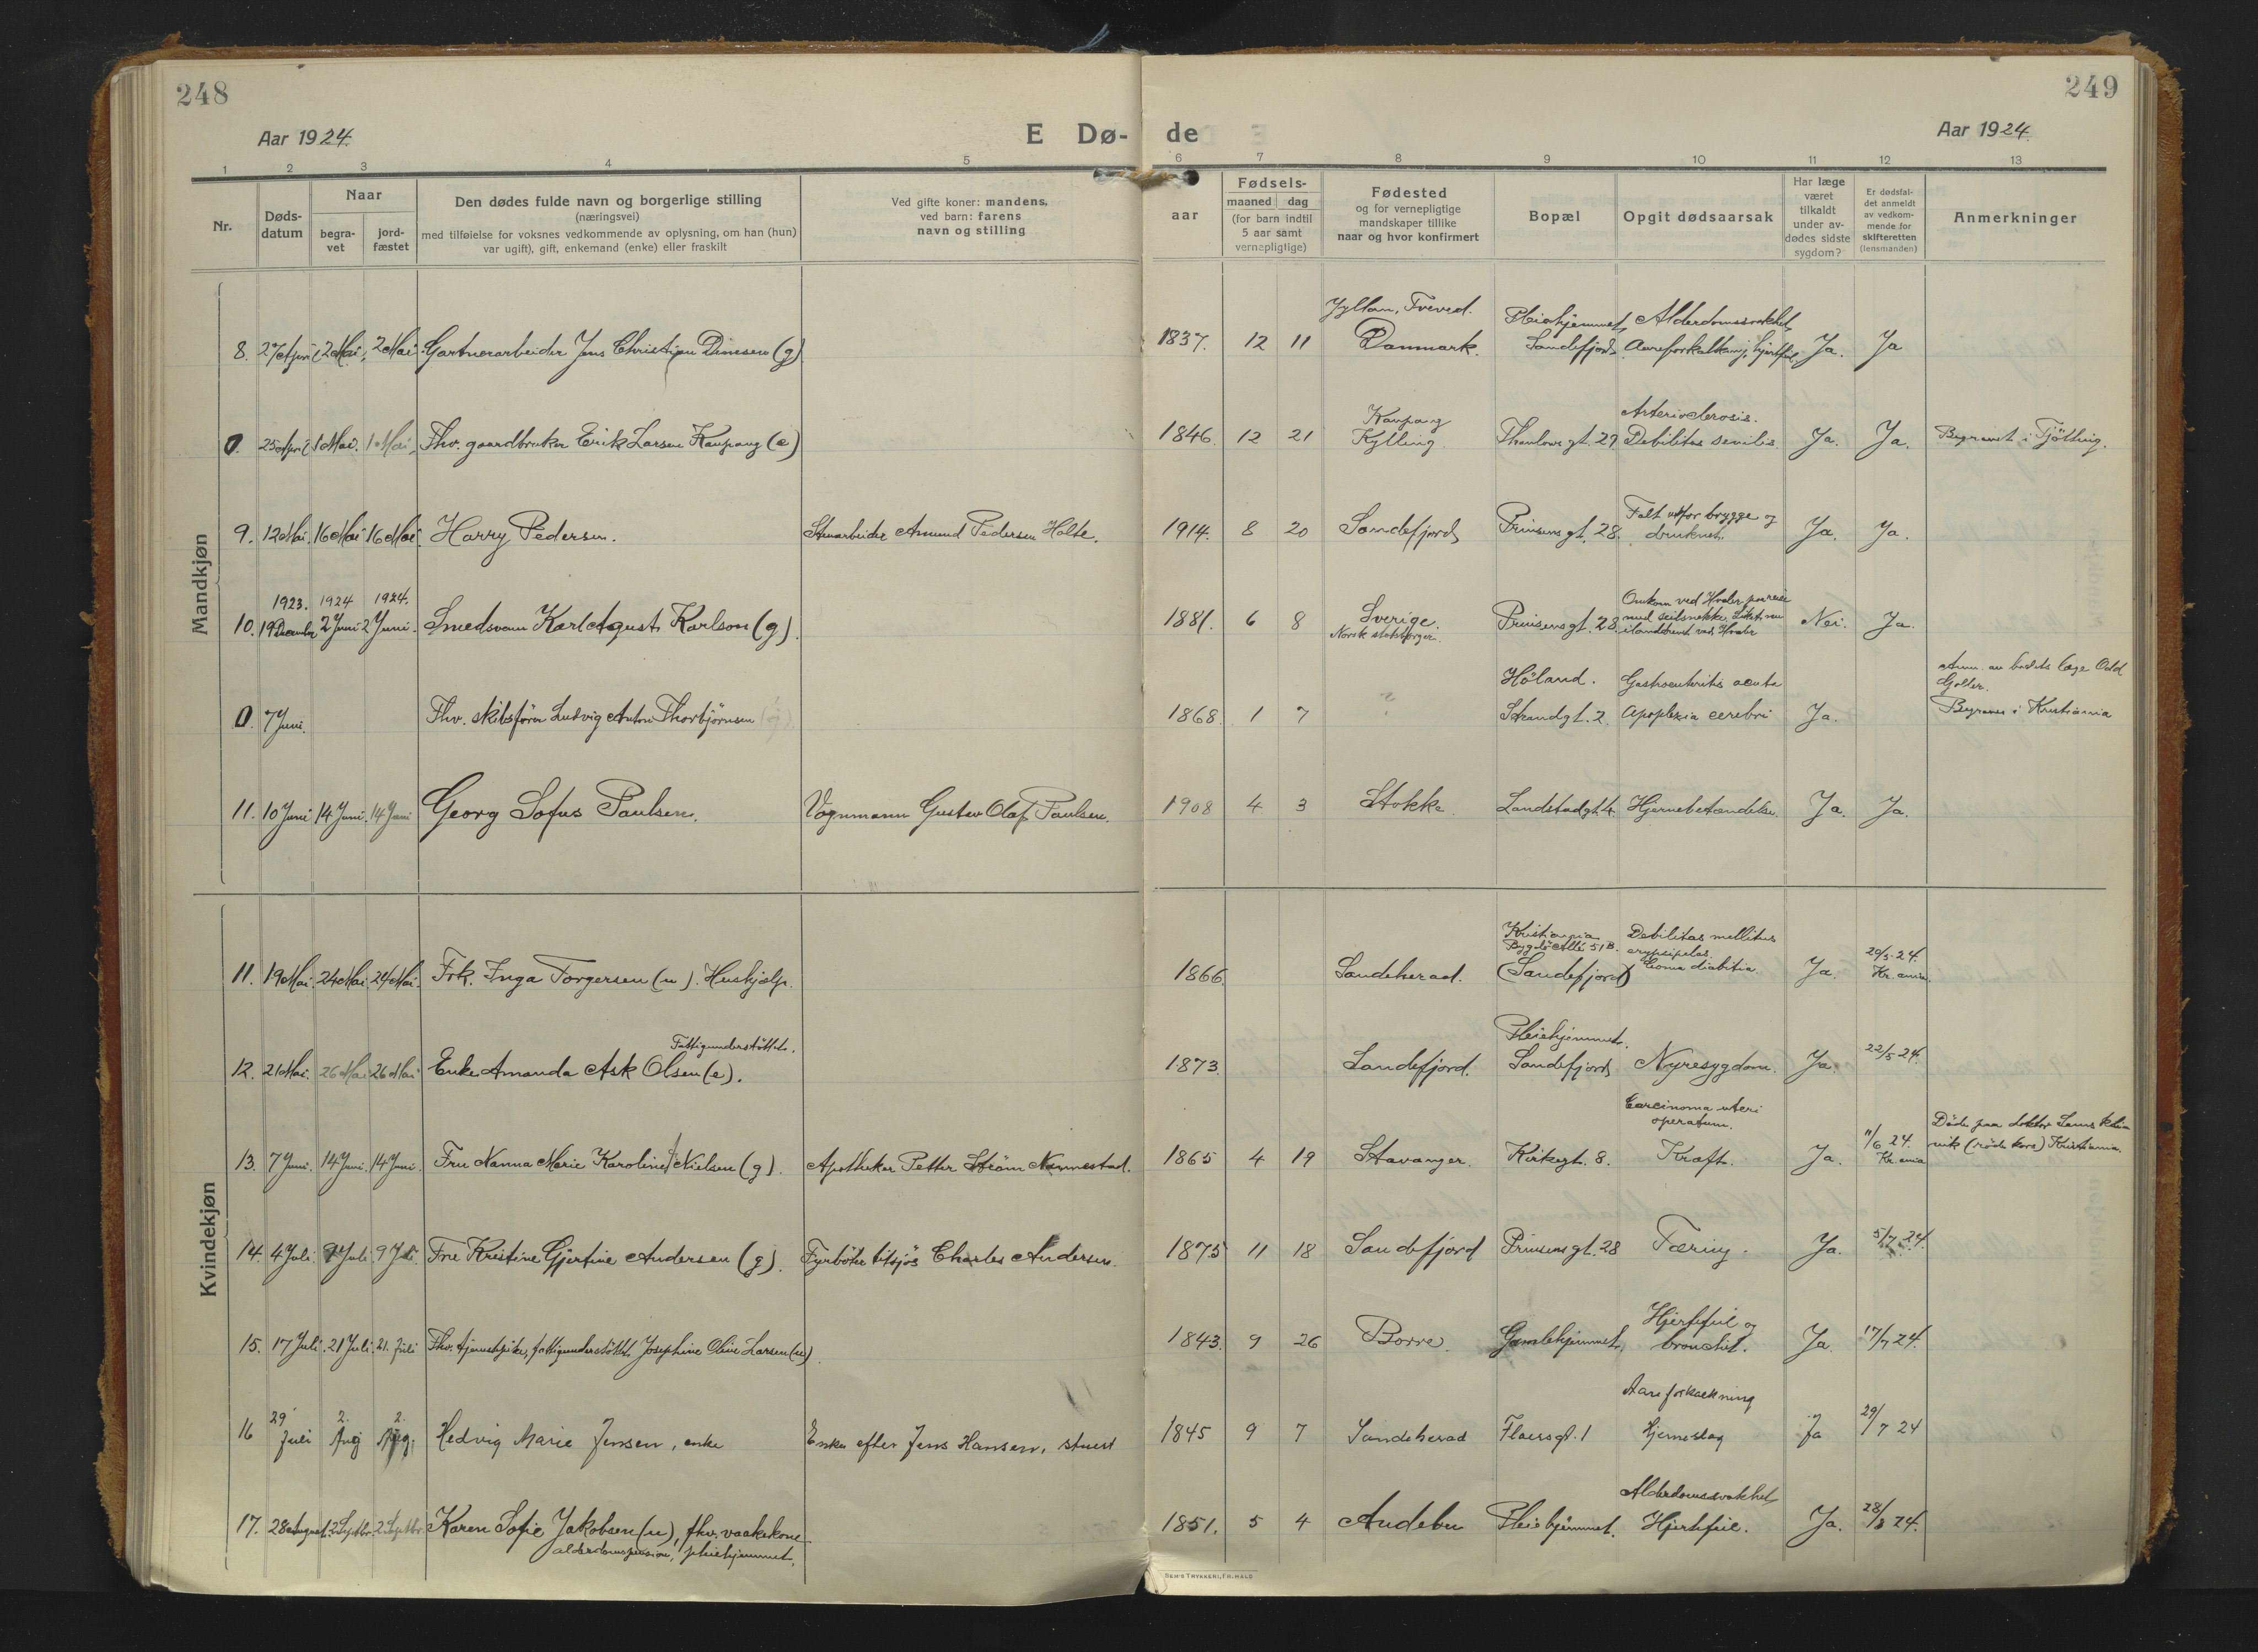 248
249
Aar 1924.
E Dø-
de
Aar 1924.
1 2 3 4 5 6 7 8 9 10 11 12 13
Nr.
Døds-
datum
Naar
begra-
vet
jord-
fæstet
Den dødes fulde navn og borgerlige stilling
(næringsvei)
med tilføielse for voksnes vedkommende av oplysning, om han (hun)
var ugift), gift, enkemand (enke) eller fraskilt
Ved gifte koner: mandens,
ved barn: farens
navn og stilling
aar
Fødsels-
maaned dag
(for barn indtil
5 aar samt
vernepligtige)
Fødested
og for vernepligtige
mandskaper tillike
naar og hvor konfirmert
Bopæl
Opgit dødsaarsak
Har læge
været
tilkaldt
under av-
dødes sidste
sygdom?
Er dødsfal-
det anmeldt
av vedkom-
mende for
skifteretten
(lensmanden)
Anmerkninger
Mandkjøn
Pleiehjemmet, Alderdomssvakhet,
8. 27 April 2 Mai. 2 Mai. Gartnerarbeider Jens Christian Dinesen (g) 1837. 12 11 Danmark. Sandefjord. Aareforkalkning, hjertefeil, Ja. Ja
Kaupang Arteriosclerosis.
0. 25 April 1 Mai. 1 Mai. Fhv. gaardbruker Erik Larsen Kaupang (e) 1846. 12 21 Kylling Thaulows gt. 29 Debilitas senilis. Ja. Ja. Begravet i Tjölling.
Falt utfor brygge og
9. 12 Mai. 16 Mai 16 Mai. Harry Pedersen. Stenarbeider Amund Pedersen Holte. 1914. 8 20 Sandefjord Prinsens gt. 28. druknet. Ja. Ja.
1923. 1924 1924. Omkom ved Hvaler paa reise
10. 19 December 2 Juni 2 Juni. Smedsvenn Karl August Karlson (g). 1881. 6 8 Sverige. Prinsens gt. 28. med seilsnekke. Nei. Ja.
Norsk statsborger. ilanddrevet ved Hvaler
Höland. Gastroenteritis acuta Anm. av badets læge Odd
0. 7 Juni. Fhv. skibsfører Ludvig Anton Thorbjörnsen (g). 1868. 1 7 ? Strandgt. 2. Apoplexia cerebri Ja. Begraves i Kristiania
11. 10 Juni 14 Juni. 14 Juni Georg Sofus Paulsen. Vognmann Gustav Olaf Paulsen. 1908 4 3 Stokke Landstadgt. 4. Hjernebetændelse. Ja. Ja.
Kvindekjøn
Kristiania Debilitas mellitus
Bygdö Allé 51 B. erypsipelas. 20/5 24.
11. 19 Mai. 24 Mai. 24 Mai. Frk. Inga Torgersen (u). Hushjelp. 1866. Sandeherad. (Sandefjord) Coma diabitia Ja. Kr.ania.
Fattigunderstöttet. Pleiehjemmet.
12. 21 Mai. 26 Mai 26 Mai Enke Amanda Ask Olsen (e). 1873. Sandefjord. Sandefjord Nyresygdom. Ja. 22/5 24.
Carcinoma uteri
operatum. Døde paa doktor
13. 7 Juni. 14 Juni. 14 Juni. Fru Nanna Marie Karoline Nielsen (g). Apotheker Petter Ström Nannestad. 1865 4 19 Stavanger. Kirkegt. 8. Kræft. Ja. 11/6 24. Kr.ania nik (röde kors) Kristiania.
14. 4 Juli. 9 Juli. 9 Juli Fru Kristine Gjertine Andersen (g). Fyrböter tilsjös Charles Andersen. 1875 11 18 Sandefjord Prinsens gt. 28 Tæring. Ja. 5/7 24.
Hjertefeil og
15. 17 Juli 21 Juli 21. Juli Fhv. tjenestepike, fattigunderstöttet Josephine Oline Larsen (u). 1843. 9 26 Borre. Gamlehjemmet. bronchit. Ja. 17/7 24.
Aareforkalkning
16 29 Juli 2. Aug 2. Aug. Hedvig Marie Jensen, enke Enke efter Jens Hansen, stuert 1845 9 7 Sandeherad gt. 1 Hjerneslag Ja 29/7 24
Alderdomssvakhet
17. 28 August. 2 Septbr. 2 Septbr. Karen Sofie Jakobsen (u), fhv. vaakekone 1851. 5 4 Andebu Pleiehjemmet. Hjertefeil. Ja. 28/8 24.
alderdomspension, pleiehjemmet.
SEM'S TRYKKERI, FR.HALD